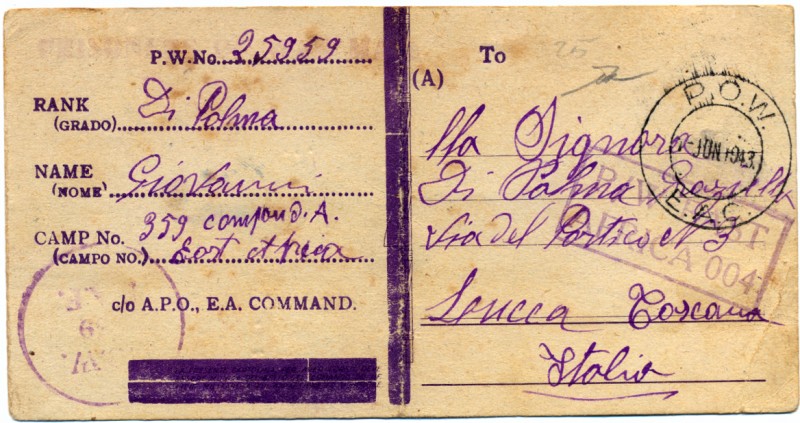 P.W.No. 25959
RANK
(GRADO) Di Palma
NAME
(NOME) Giovanni
CAMP No. 359 compound. A.
(CAMPO NO.) East Africa
c/o A.P.O., E.A. COMMAND.
To
(A)
P.O.W.
JUN 1943
E.A.C.
Alla Signora
Di Palma
Via del Portico N 3
Lucca Toscana
Italia
AFRICA 004